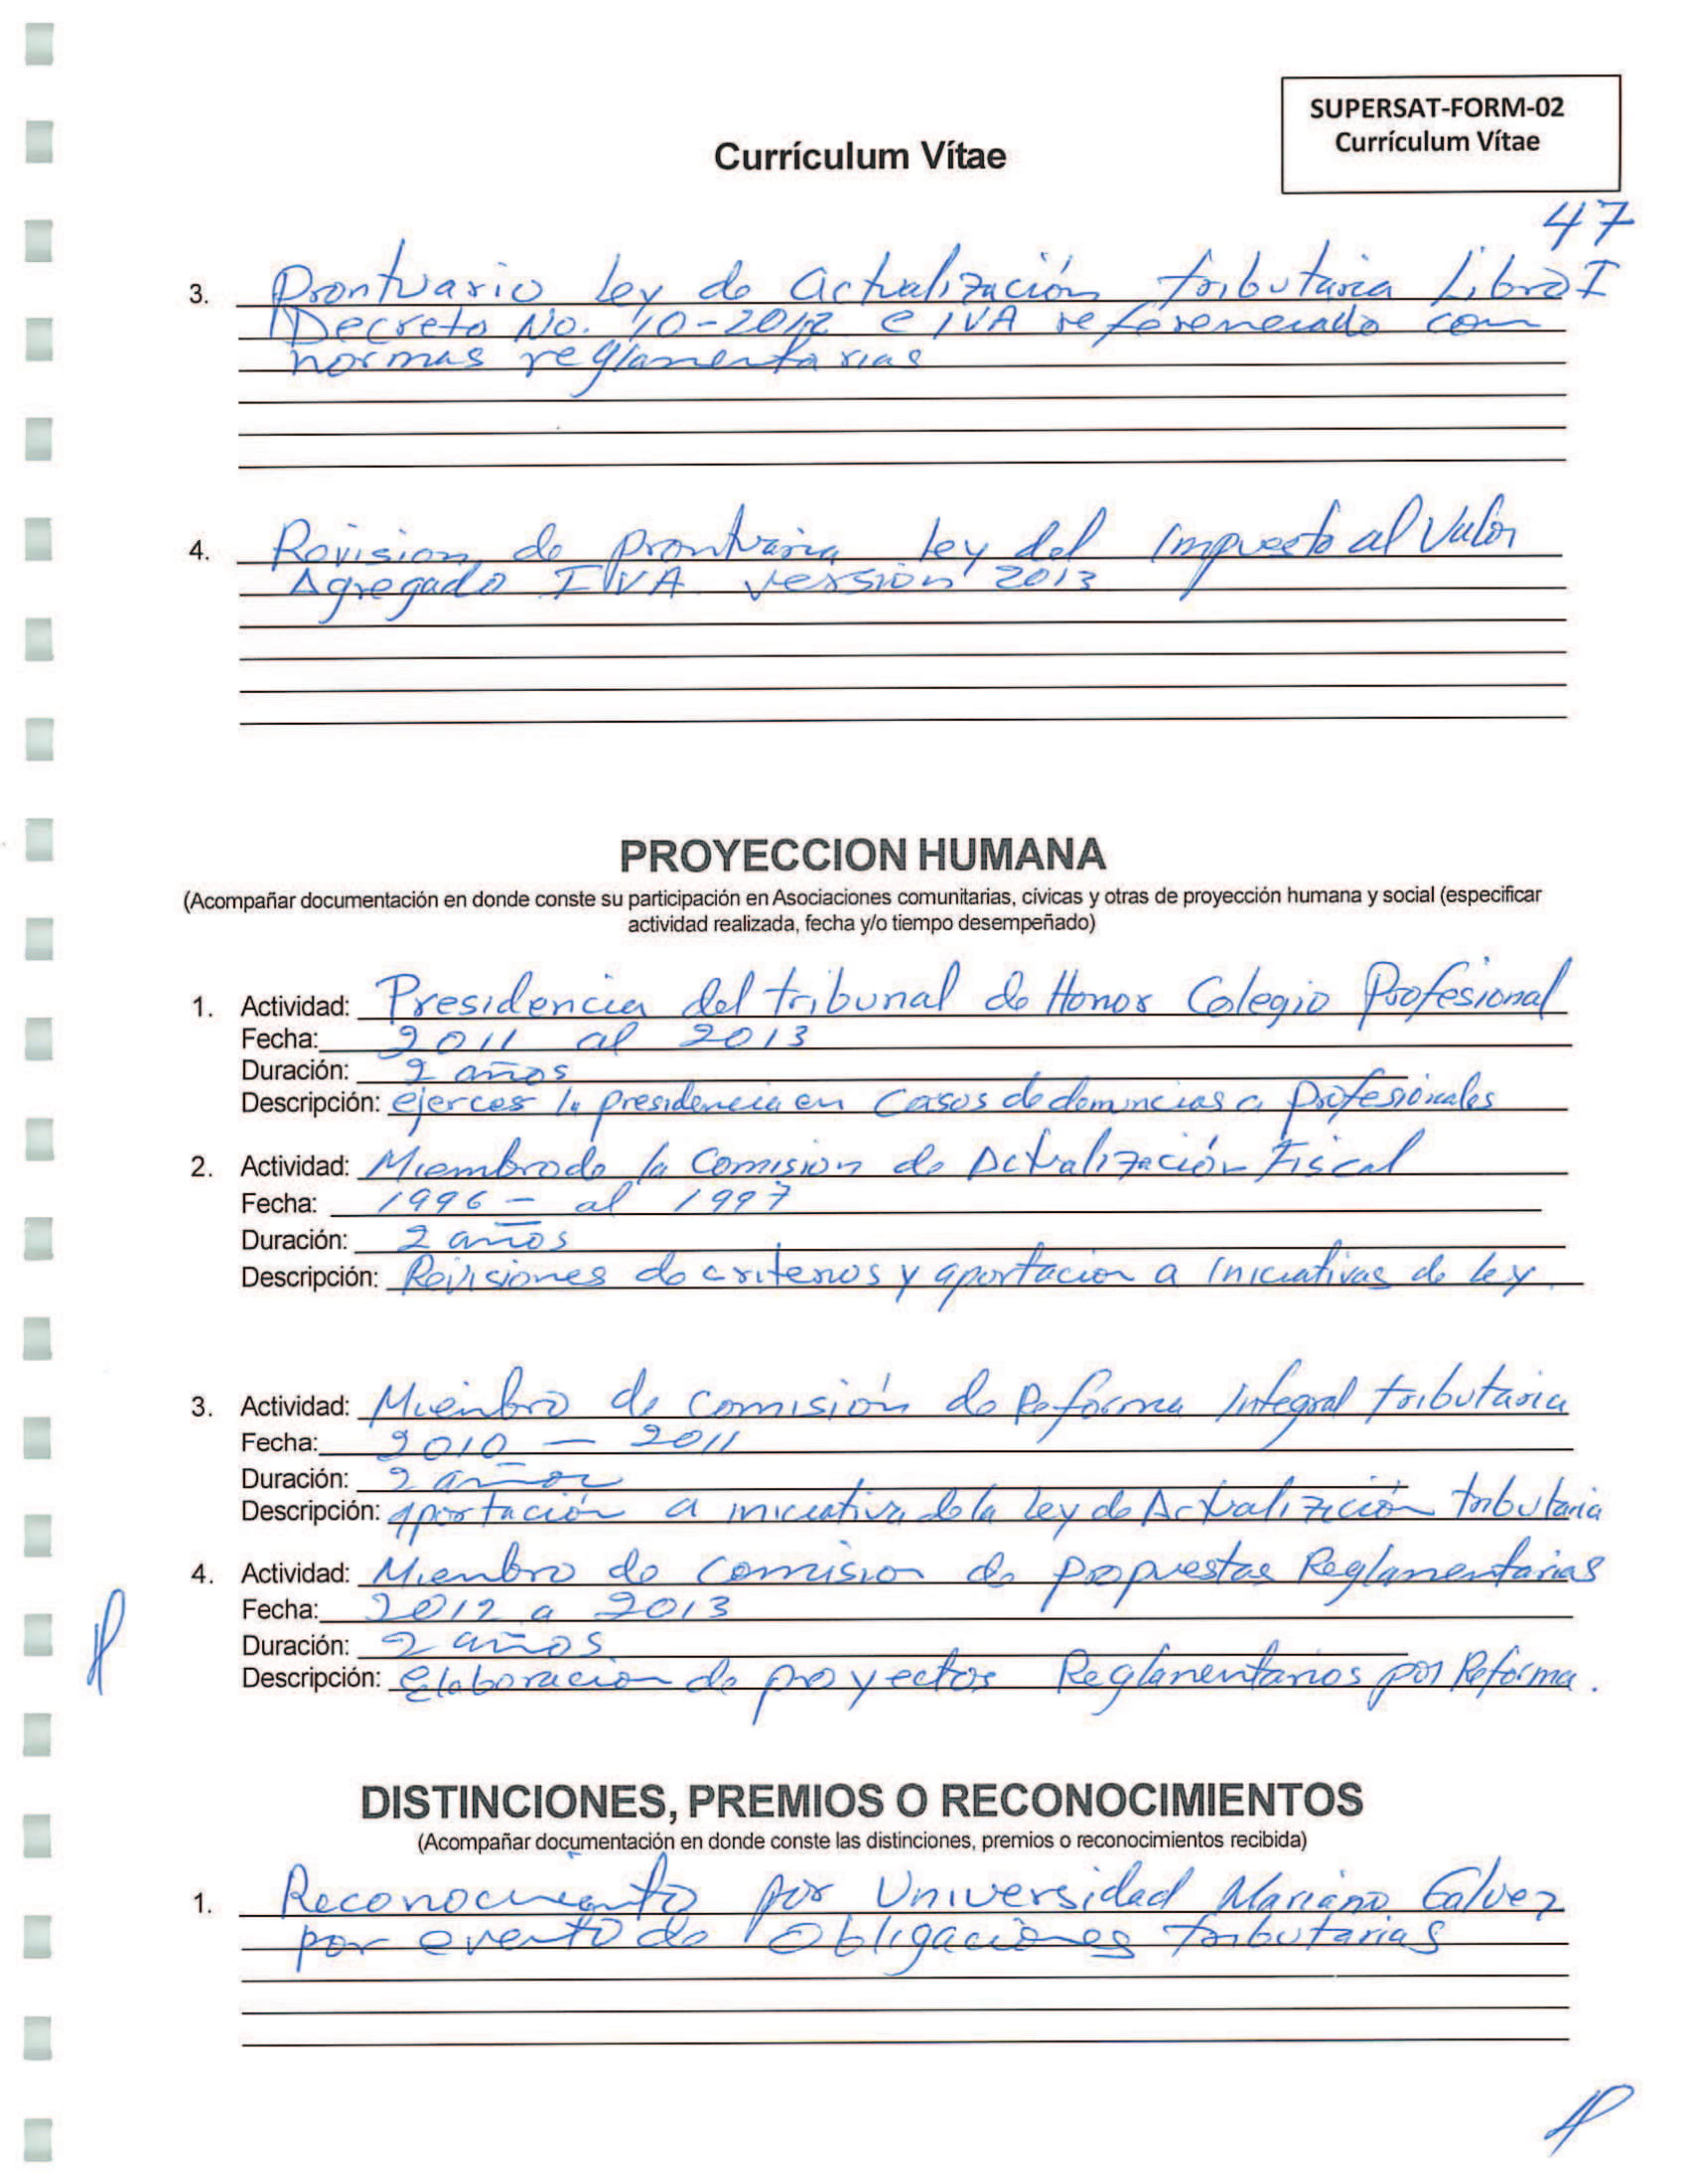 SUPERSAT-FORM-02
Currículum Vítae
Currículum Vítae
47
3. Prontuario Ley de Actualización tributaria Libro I
Decreto No. 10-2012 e IVA referenciado com
normas reglamentarias
4. Revision de prontuario Ley del Impuesto al Valor
Agregado IVA version 2013
PROYECCION HUMANA
(Acompañar documentación en donde conste su participación en Asociaciones comunitarias, cívicas y otras de proyección humana y social (especificar
actividad realizada, fecha y/o tiempo desempeñado)
1. Actividad: Presidencia del tribunal de Honor Colegio Profesional
Fecha: 2011 al 2013
Duración: 2 años
Descripción: ejercer la presidencia en Casos de denuncias a profesionales
2. Actividad: Miembro de la Comision de Actualización Fiscal
Fecha: 1996 - al 1997
Duración: 2 años
Descripción: Revisiones de criterios y aportacion a Iniciativas de ley.
3. Actividad: Miembro de comisión de Reforma Integral tributaria
Fecha: 2010 - 2011
Duración: 2 años
Descripción: aportación a iniciativa de la Ley de Actualización tributaria
4. Actividad: Miembro de Comision de propuestas Reglamentarias
Fecha: 2012 a 2013
Duración: 2 años
Descripción: Elaboracion de proyectos Reglamentarios por Reforma.
DISTINCIONES, PREMIOS O RECONOCIMIENTOS
(Acompañar documentación en donde conste las distinciones, premios o reconocimientos recibida)
1. Reconocimiento por Universidad Mariano Galvez
por evento de Obligaciones tributarias